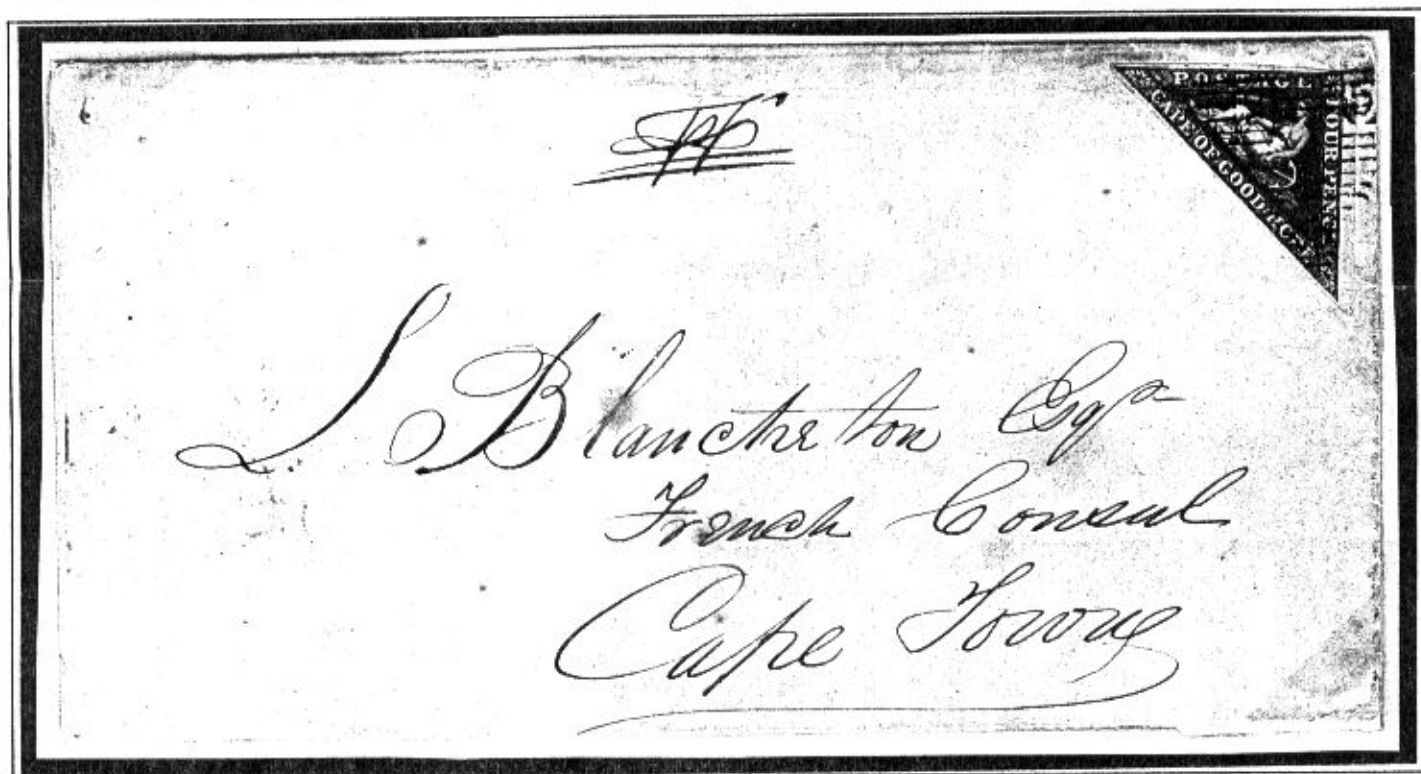 pp
POSTAGE
FOUR PENCE
CAPE OF GOOD HOPE
L Blancheton Esqr
French Consul
Cape Town